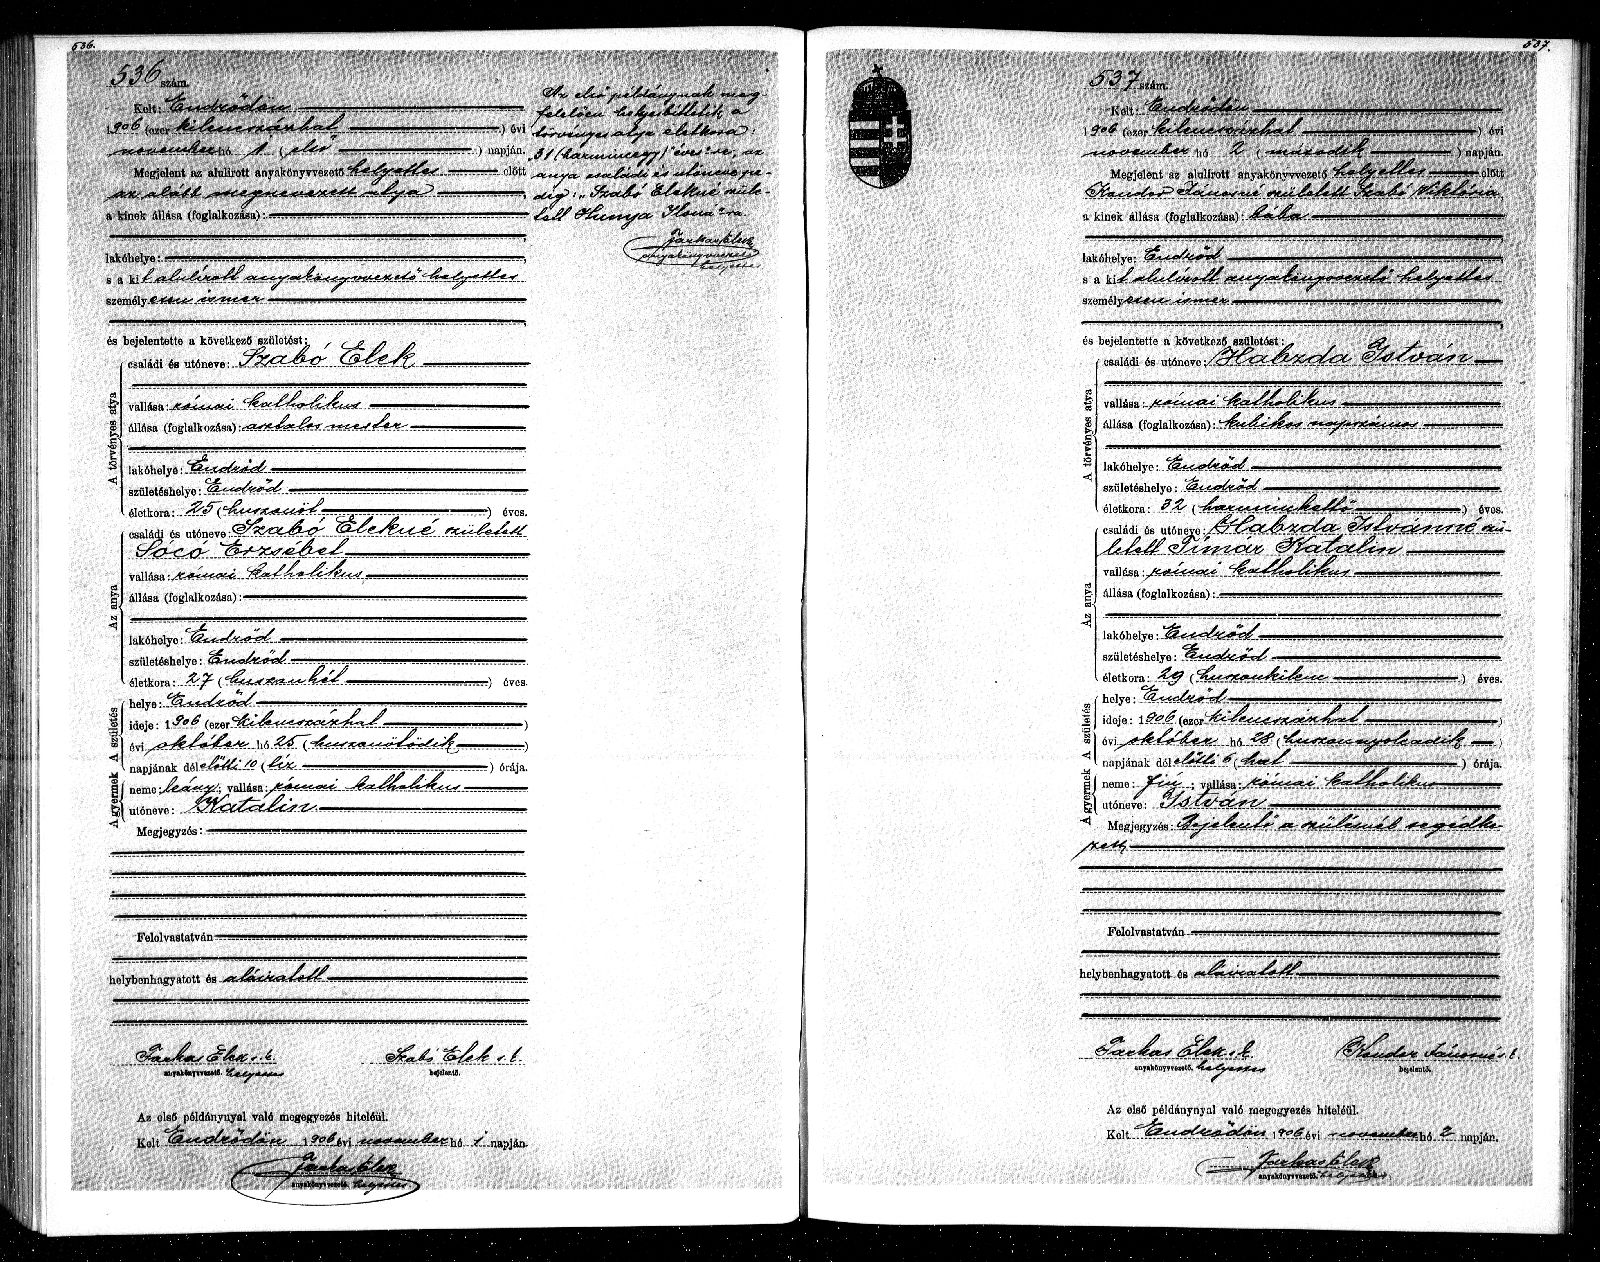 536.
536 szám.
Kelt: Endrődön
1906 (ezer kilencszázhat) évi
november hó 1 (első) napján.
Megjelent az alulirott anyakönyvvezető helyettes előtt
az alább megnevezett atya
a kinek állása (foglalkozása):
lakóhelye:
s a kit alulírott anyakönyvvezető helyettes
személyesen ismer
és bejelentette a következő születést:
A törvényes atya
családi és utóneve: Szabó Elek
vallása: római katholikus
állása (foglalkozása): asztalos mester
lakóhelye: Endrőd
születéshelye: Endrőd
életkora: 25 (huszonöt) éves.
Az anya
családi és utóneve: Szabó Elekné született
Sócó Erzsébet
vallása: római katholikus
állása (foglalkozása):
lakóhelye: Endrőd
születéshelye: Endrőd
életkora: 27 (huszonhét) éves.
A születés
helye: Endrőd
ideje: 1906 (ezer kilencszázhat)
évi október hó 25 (huszonötödik)
napjának délelőtti 10 (tíz) órája.
A gyermek
neme: leány; vallása: római katholikus
utóneve: Katalin
Megjegyzés:
Felolvastatván
helybenhagyatott és aláiratott
Farkas Elek s.k. Szabó Elek s.k.
anyakönyvvezető. helyettes bejelentő.
Az első példánynyal való megegyezés hiteléül.
Kelt Endrődön 1906 évi november hó 1 napján.
Farkas Elek
anyakönyvvezető. helyettes
Az első példánynak meg
felelően helyesbíttetik a
törvényes atya életkora:
„31 (harminegy)" éves"-re, az
anya családi és utóneve pe-
dig: „Szabó Elekné szüle-
tett Hunya Ilona"-ra.
Farkas Elek
anyakönyvvezető
helyettes
537.
537 szám.
Kelt: Endrődön
1906 (ezer kilencszázhat) évi
november hó 2 (második) napján.
Megjelent az alulirott anyakönyvvezető helyettes előtt
Kondor Jánosné született Szabó Viktória
a kinek állása (foglalkozása): bába
lakóhelye: Endrőd
s a kit alulírott anyakönyvvezető helyettes
személyesen ismer
és bejelentette a következő születést:
A törvényes atya
családi és utóneve: Habzda István
vallása: római katholikus
állása (foglalkozása): kubikos napszámos
lakóhelye: Endrőd
születéshelye: Endrőd
életkora: 32 (harminckettő) éves.
Az anya
családi és utóneve: Habzda Istvánné szü-
letett Tímár Katalin
vallása: római katholikus
állása (foglalkozása):
lakóhelye: Endrőd
születéshelye: Endrőd
életkora: 29 (huszonkilenc) éves.
A születés
helye: Endrőd
ideje: 1906 (ezer kilencszázhat)
évi október hó 28 (huszonnyolcadik)
napjának délelőtti 6 (hat) órája.
A gyermek
neme: fiú; vallása: római katholikus
utóneve: István
Megjegyzés: Bejelentő a szülésnél segédke-
zett
Felolvastatván
helybenhagyatott és aláiratott
Farkas Elek s.k. Kondor Jánosné s.k.
anyakönyvvezető. helyettes bejelentő.
Az első példánynyal való megegyezés hiteléül.
Kelt Endrődön 1906 évi november hó 2 napján.
Farkas Elek
anyakönyvvezető. helyettes